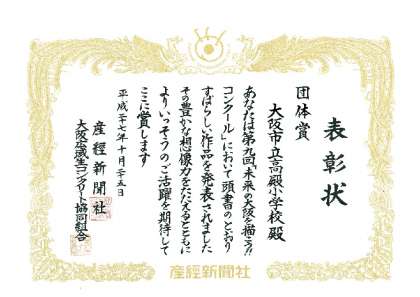 表彰状
団体賞
大阪市立高殿小学校殿
あなたは第九回「未来の大阪を描こう!!
コンクール」において頭書のとおり
すばらしい作品を発表されました
その豊かな想像力をたたえるとともに
よりいっそうのご活躍を期待して
ここに賞します
平成二十七年十月二十五日
産經新聞社
大阪広域生コンクリート協同組合
産經新聞社